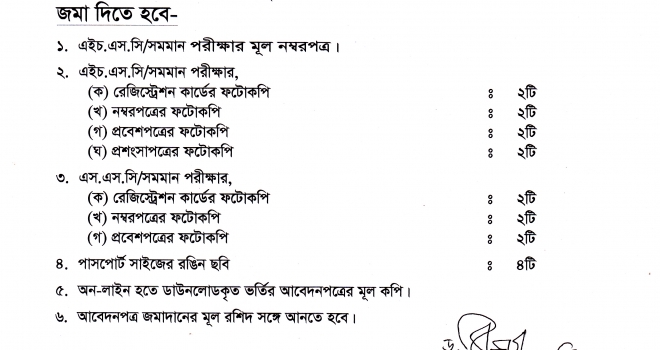 জমা দিতে হবে-
১. এইচ.এস.সি/সমমান পরীক্ষার মূল নম্বরপত্র।
২. এইচ.এস.সি/সমমান পরীক্ষার,
(ক) রেজিস্ট্রেশন কার্ডের ফটোকপি ঃ ২টি
(খ) নম্বরপত্রের ফটোকপি ঃ ২টি
(গ) প্রবেশপত্রের ফটোকপি ঃ ২টি
(ঘ) প্রশংসাপত্রের ফটোকপি ঃ ২টি
৩. এস.এস.সি/সমমান পরীক্ষার,
(ক) রেজিস্ট্রেশন কার্ডের ফটোকপি ঃ ২টি
(খ) নম্বরপত্রের ফটোকপি ঃ ২টি
(গ) প্রবেশপত্রের ফটোকপি ঃ ২টি
৪. পাসপোর্ট সাইজের রঙিন ছবি ঃ ৪টি
৫. অন-লাইন হতে ডাউনলোডকৃত ভর্তির আবেদনপত্রের মূল কপি।
৬. আবেদনপত্র জমাদানের মূল রশিদ সঙ্গে আনতে হবে।